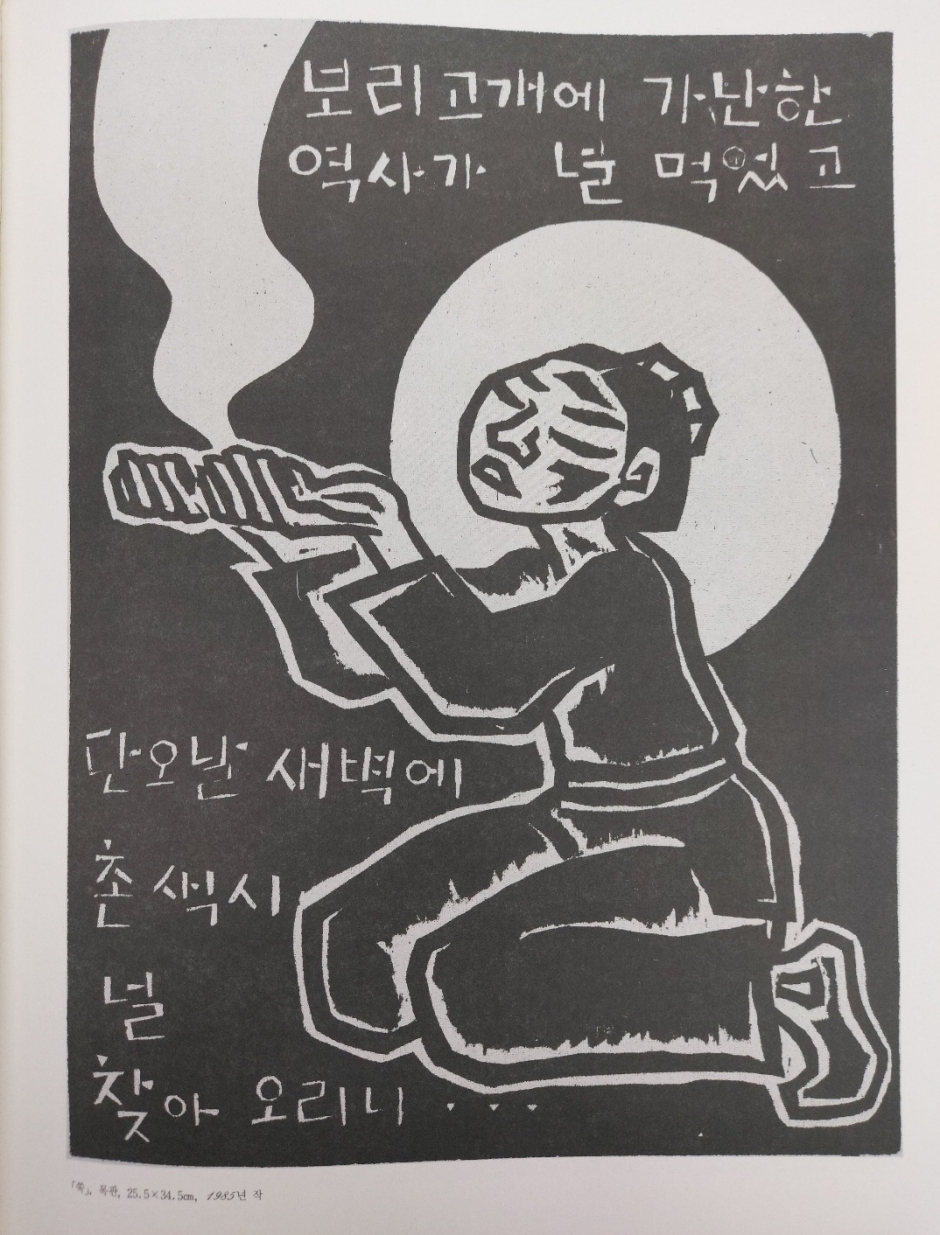 보리고개에 가난한
역사가 널 먹였고
단오날 새벽에
촌색시
널
찾아 오리니 ...
「쑥」, 목판, 25.5×34.5cm, 1985년 작